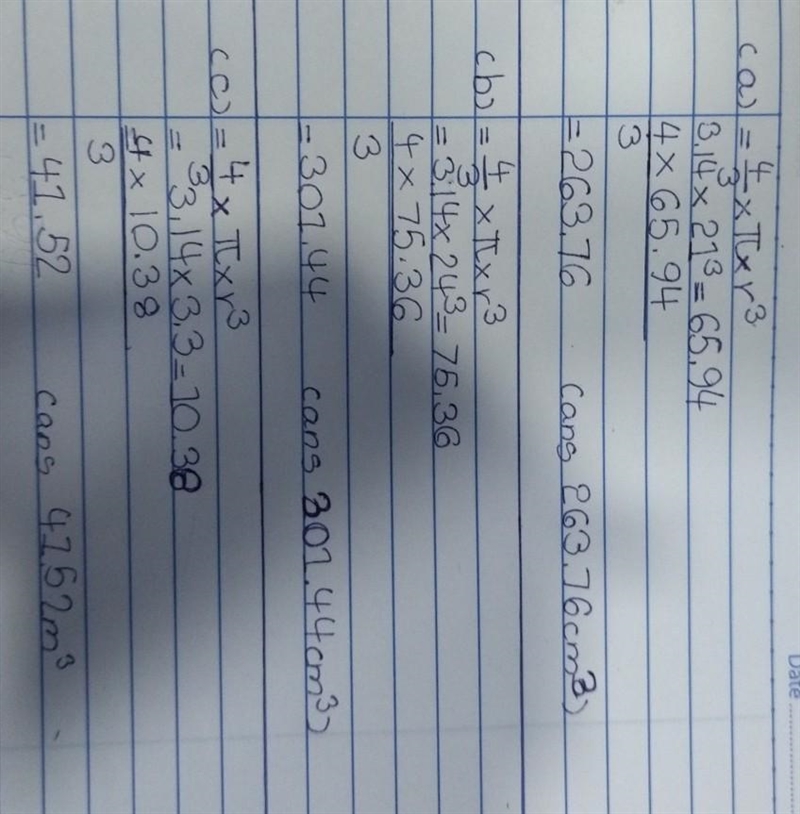 Date ..................
(a) = 4/3 × π × r³
3.14 × 21³ = 65.94
4 × 65.94
3
= 263.76 (ans 263.76cm³)
(b) = 4/3 × π × r³
= 3.14 × 24³ = 75.36
4 × 75.36
3
= 301.44 (ans 301.44cm³)
(c) = 4/3 × π × r³
= 3.14 × 3.3 = 10.38
4 × 10.38
3
= 41.52 (ans 41.52m³